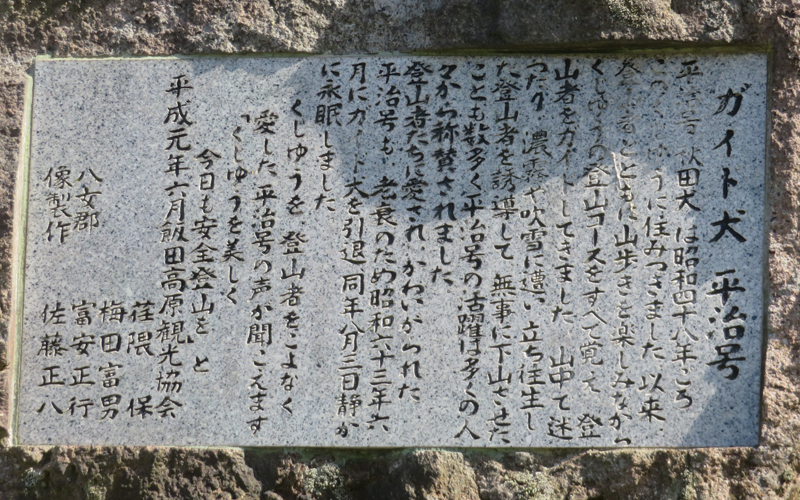 ガイド犬 平治号
平治号 秋田犬 は昭和四十八年ごろ
このくじゅうに住みつきました 以来
登山者とともに山歩きを楽しみながら
くじゅうの登山コースをすべて覚え 登
山者をガイドしてきました 山中で迷
ったり 濃霧や吹雪に遭い 立ち往生し
た登山者を誘導して 無事に下山させた
ことも数多く平治号の活躍は多くの人
々から称賛されました
登山者たちに愛され かわいがられた
平治号も 老衰のため昭和六十三年六
月にガイド犬を引退 同年八月三日静か
に永眠しました
くじゆうを 登山者をこよなく
愛した 平治号の声が聞こえます
「くじゆうを美しく
今日も安全登山を」と
平成元年六月飯田高原観光協会
荏隈 保
八女郡 梅田富男
像製作 富安正行
佐藤正八